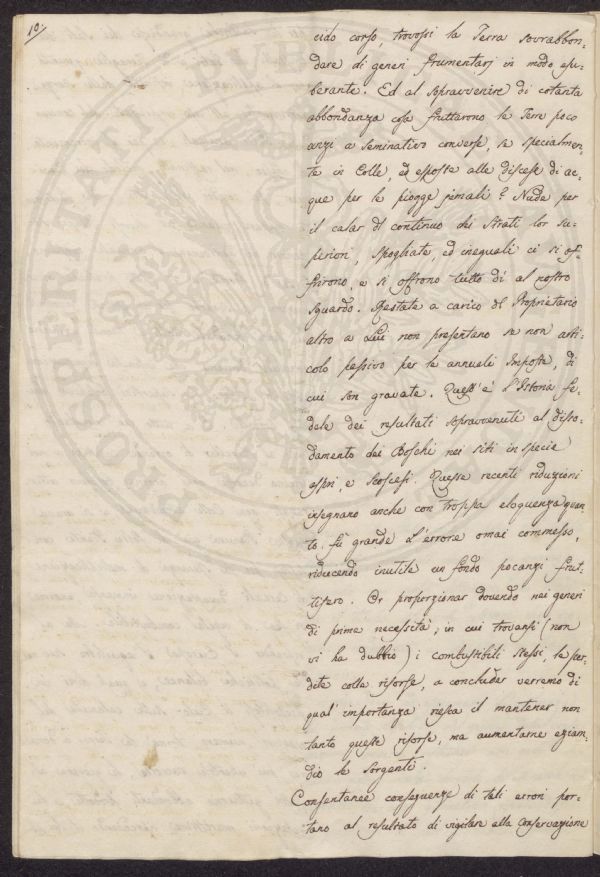 10.
cido corso, trovossi la Terra sovrabbon-
dare di generi frumentarj in modo esu-
berante. Ed al sopravvenire di cotanta
abbondanza cosa fruttarono le Terre poco
anzi a seminativo converse, se specialmen-
te in Colle, ed esposte alle discese di ac-
que per le piogge jemali? Nude per
il calar dl continuo dei strati lor su-
periori, spogliate, ed ineguali ci si of-
frirono, e si offrono tutto dì al nostro
sguardo. Restate a carico dl Proprietario
altro a Lui non presentano se non arti-
colo passivo per le annuali Imposte, di
cui son gravate. Quest'è l'Istoria fe-
dele dei resultati sopravvenuti al disso-
damento dei Boschi nei siti in specie
aspri, e scoscesi. Queste recenti riduzioni
insegnano anche con troppa eloquenza quan-
to fù grande l'errore omai commesso,
riducendo inutile un fondo pocanzi frut-
tifero. Or proporzionar dovendo nei generi
di prima necessità, in cui trovansi (non
vi ha dubbio) i combustibili stessi, le per-
dite colle risorse, a concluder verremo di
qual'importanza riesca il mantener non
tanto queste risorse, ma aumentarne ezian-
dio le sorgenti.
Consentanee conseguenze di tali errori por-
tano al resultato di vigilare alla Conservazione
PROSPERITATI